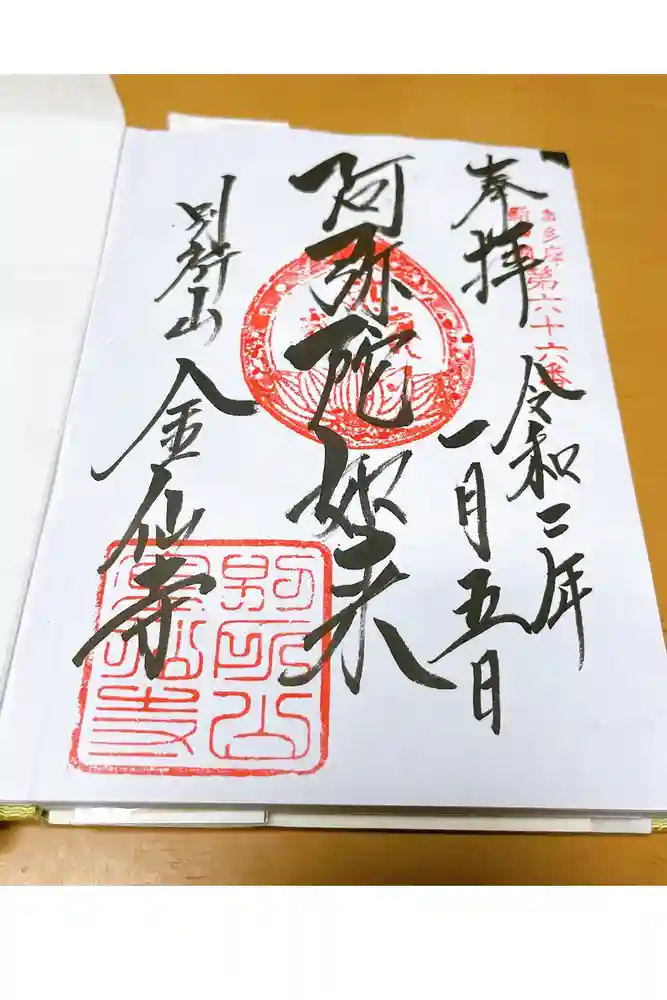 奉拝
第六十六番
令和二年
一月五日
阿弥陀如来
別所山
金仙寺
別所山
金仙寺